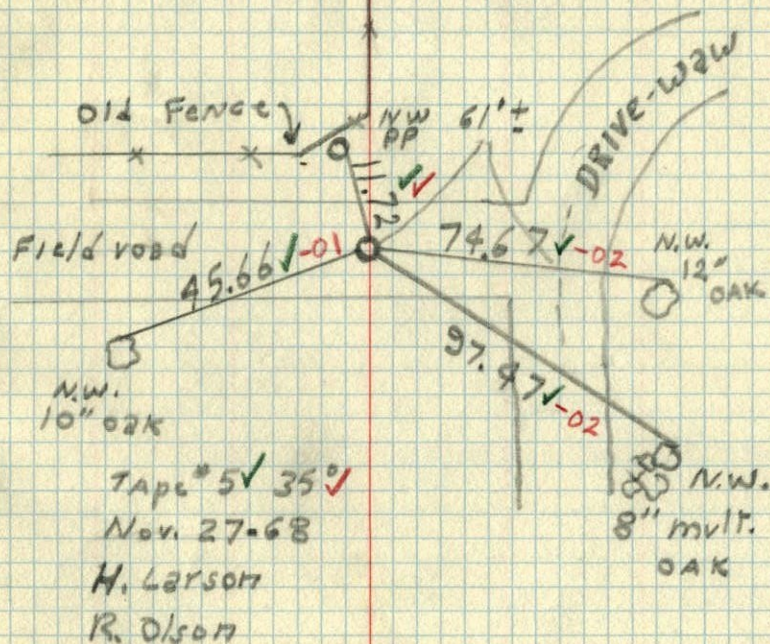 Old Fence
N.W
PP
61'±
DRIVE-WAW
11.72 ✓✓
Field road
45.66 ✓ -01
74.67 ✓ -02
N.W.
12"
OAK
97.47 ✓ -02
N.W.
10" oak
N.W.
8" mult.
OAK
TApe # 5 ✓ 35° ✓
Nov. 27-68
H. Larson
R. Olson